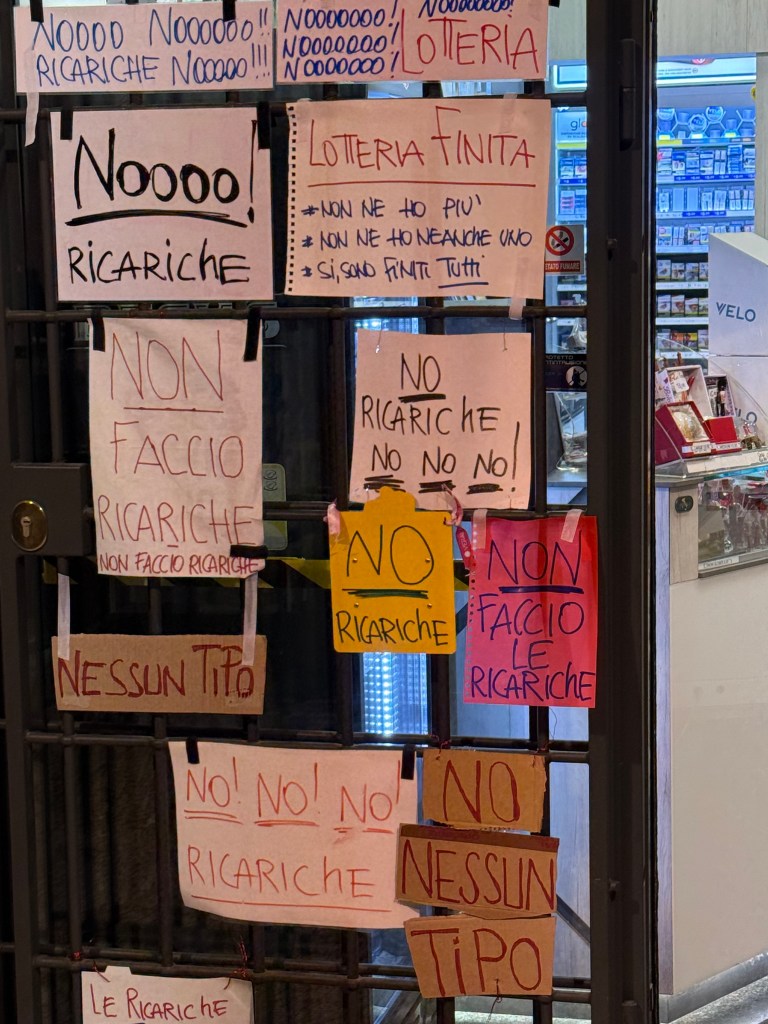 NOOOO NOOOOOO!!
RICARICHE NOOOOO!!!
NOOOOOOO! NOOOOOOOO!
NOOOOOOO!
NOOOOOOO! LOTTERIA
NOOOO!
RICARICHE
LOTTERIA FINITA
* NON NE HO PIU'
* NON NE HO NEANCHE UNO
* SI, SONO FINITI TUTTI
NON
FACCIO
RICARICHE
NON FACCIO RICARICHE
NO
RICARICHE
NO NO NO!
NO
RICARICHE
NON
FACCIO
LE
RICARICHE
NESSUN TIPO
NO! NO! NO!
RICARICHE
NO
NESSUN
TIPO
LE RICARICHE
VELO